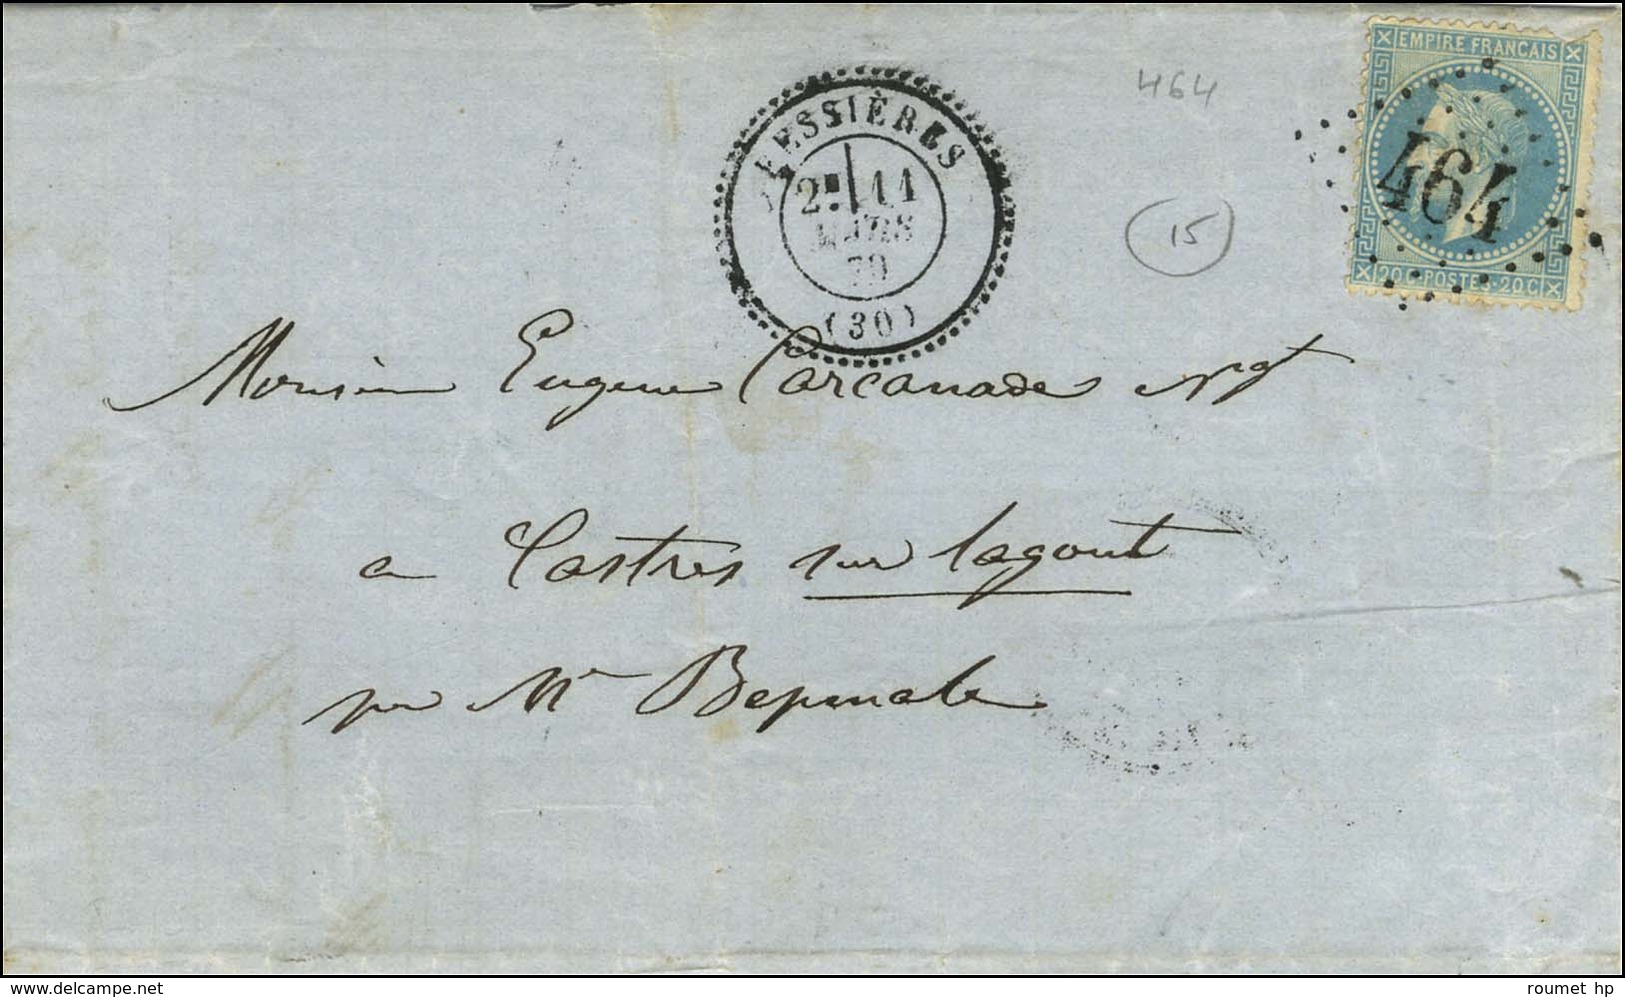 EMPIRE FRANCAIS
464
464
20 C - POSTES - 20 C
BESSIÈRES
2E 11
MARS
70
(30)
15
Monsieur Eugene Carcanade Ngt
a Castres sur lagout
par Mr
www.delcampe.net
roumet hp